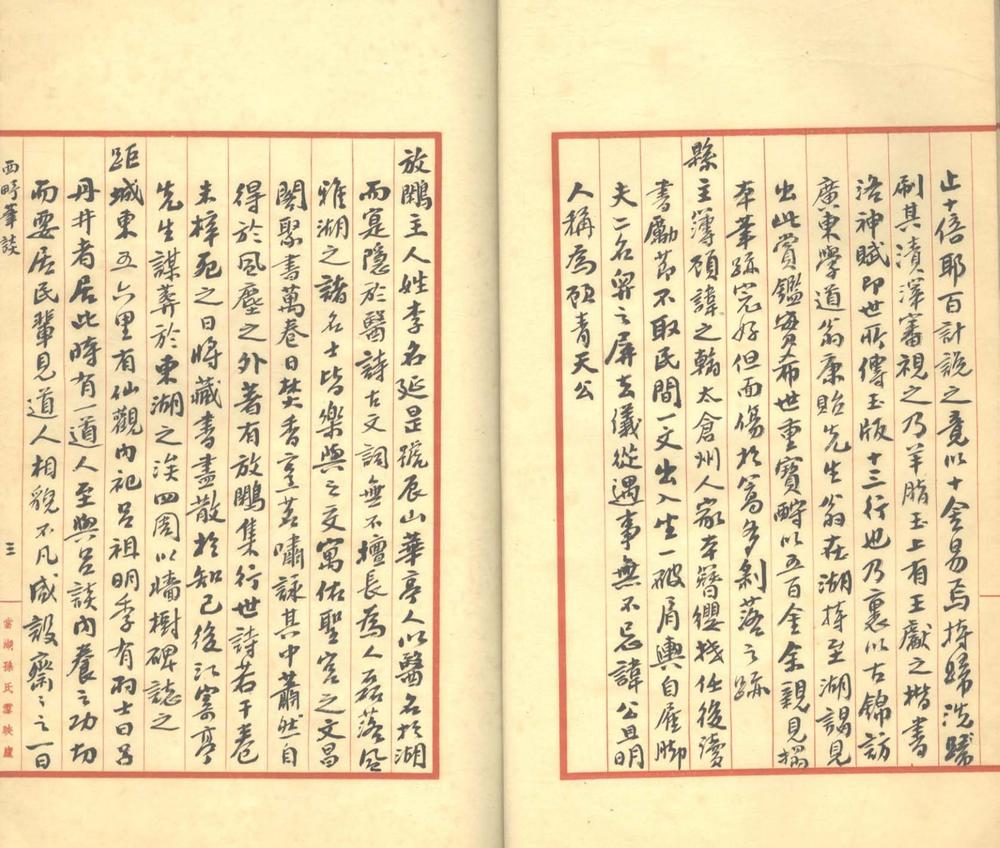 止十倍耶百計說之竟以十金易焉持歸洗蠟
刷其漬深審視之乃羊脂玉上有王獻之楷書
洛神賦即世所傳玉版十三行也乃裹以古錦訪
廣東學道翁康貽先生翁在湖持至湖謁見
出此賞鑑實希世重寶酧以五百金余親見搨
本筆跡完好但面傷於窩多剝落之跡
縣主簿顧諱之翰太倉州人家本簪纓投任後讀
書勵節不取民間一文出入坐一破肩輿自雇脚
夫二名舁之屏去儀從遇事無不忌諱公且明
人稱為顧青天公
放鷴主人姓李名延昰號辰山華亭人以醫名於湖
而寔隱於醫詩古文詞無不擅長為人磊落風
雅湖之諸名士皆樂與之交寓佑聖宮之文昌
閣聚書萬卷日焚香烹茗嘯詠其中蕭然自
得於風塵之外著有放鷴集行世詩若干卷
未梓死之日將藏書盡散於知己後江寄亭
先生謀葬於東湖之涘四周以墻樹碑誌之
距城東五六里有仙觀內祀呂祖明季有羽士曰呂
丹井者居此時有一道人至與呂談內養之功切
而要居民輩見道人相貌不凡咸設齋之一日
西疇筆談
三
當湖孫氏雪映廬